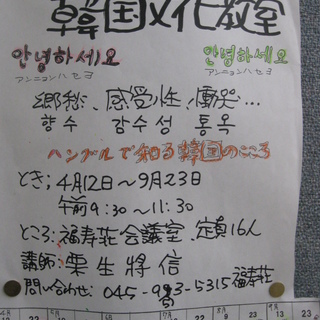 韓国文化教室
안녕하세요 안녕하세요
アンニョンハセヨ アンニョンハセヨ
郷愁、感受性、慟哭…
향수 감수성 통곡
ハングルで知る韓国のこころ
とき；4月12日～9月23日
午前9:30～11:30
ところ；福寿荘会議室、定員16人
講師；栗生將信
問い合わせ；045-983-5315 福寿荘